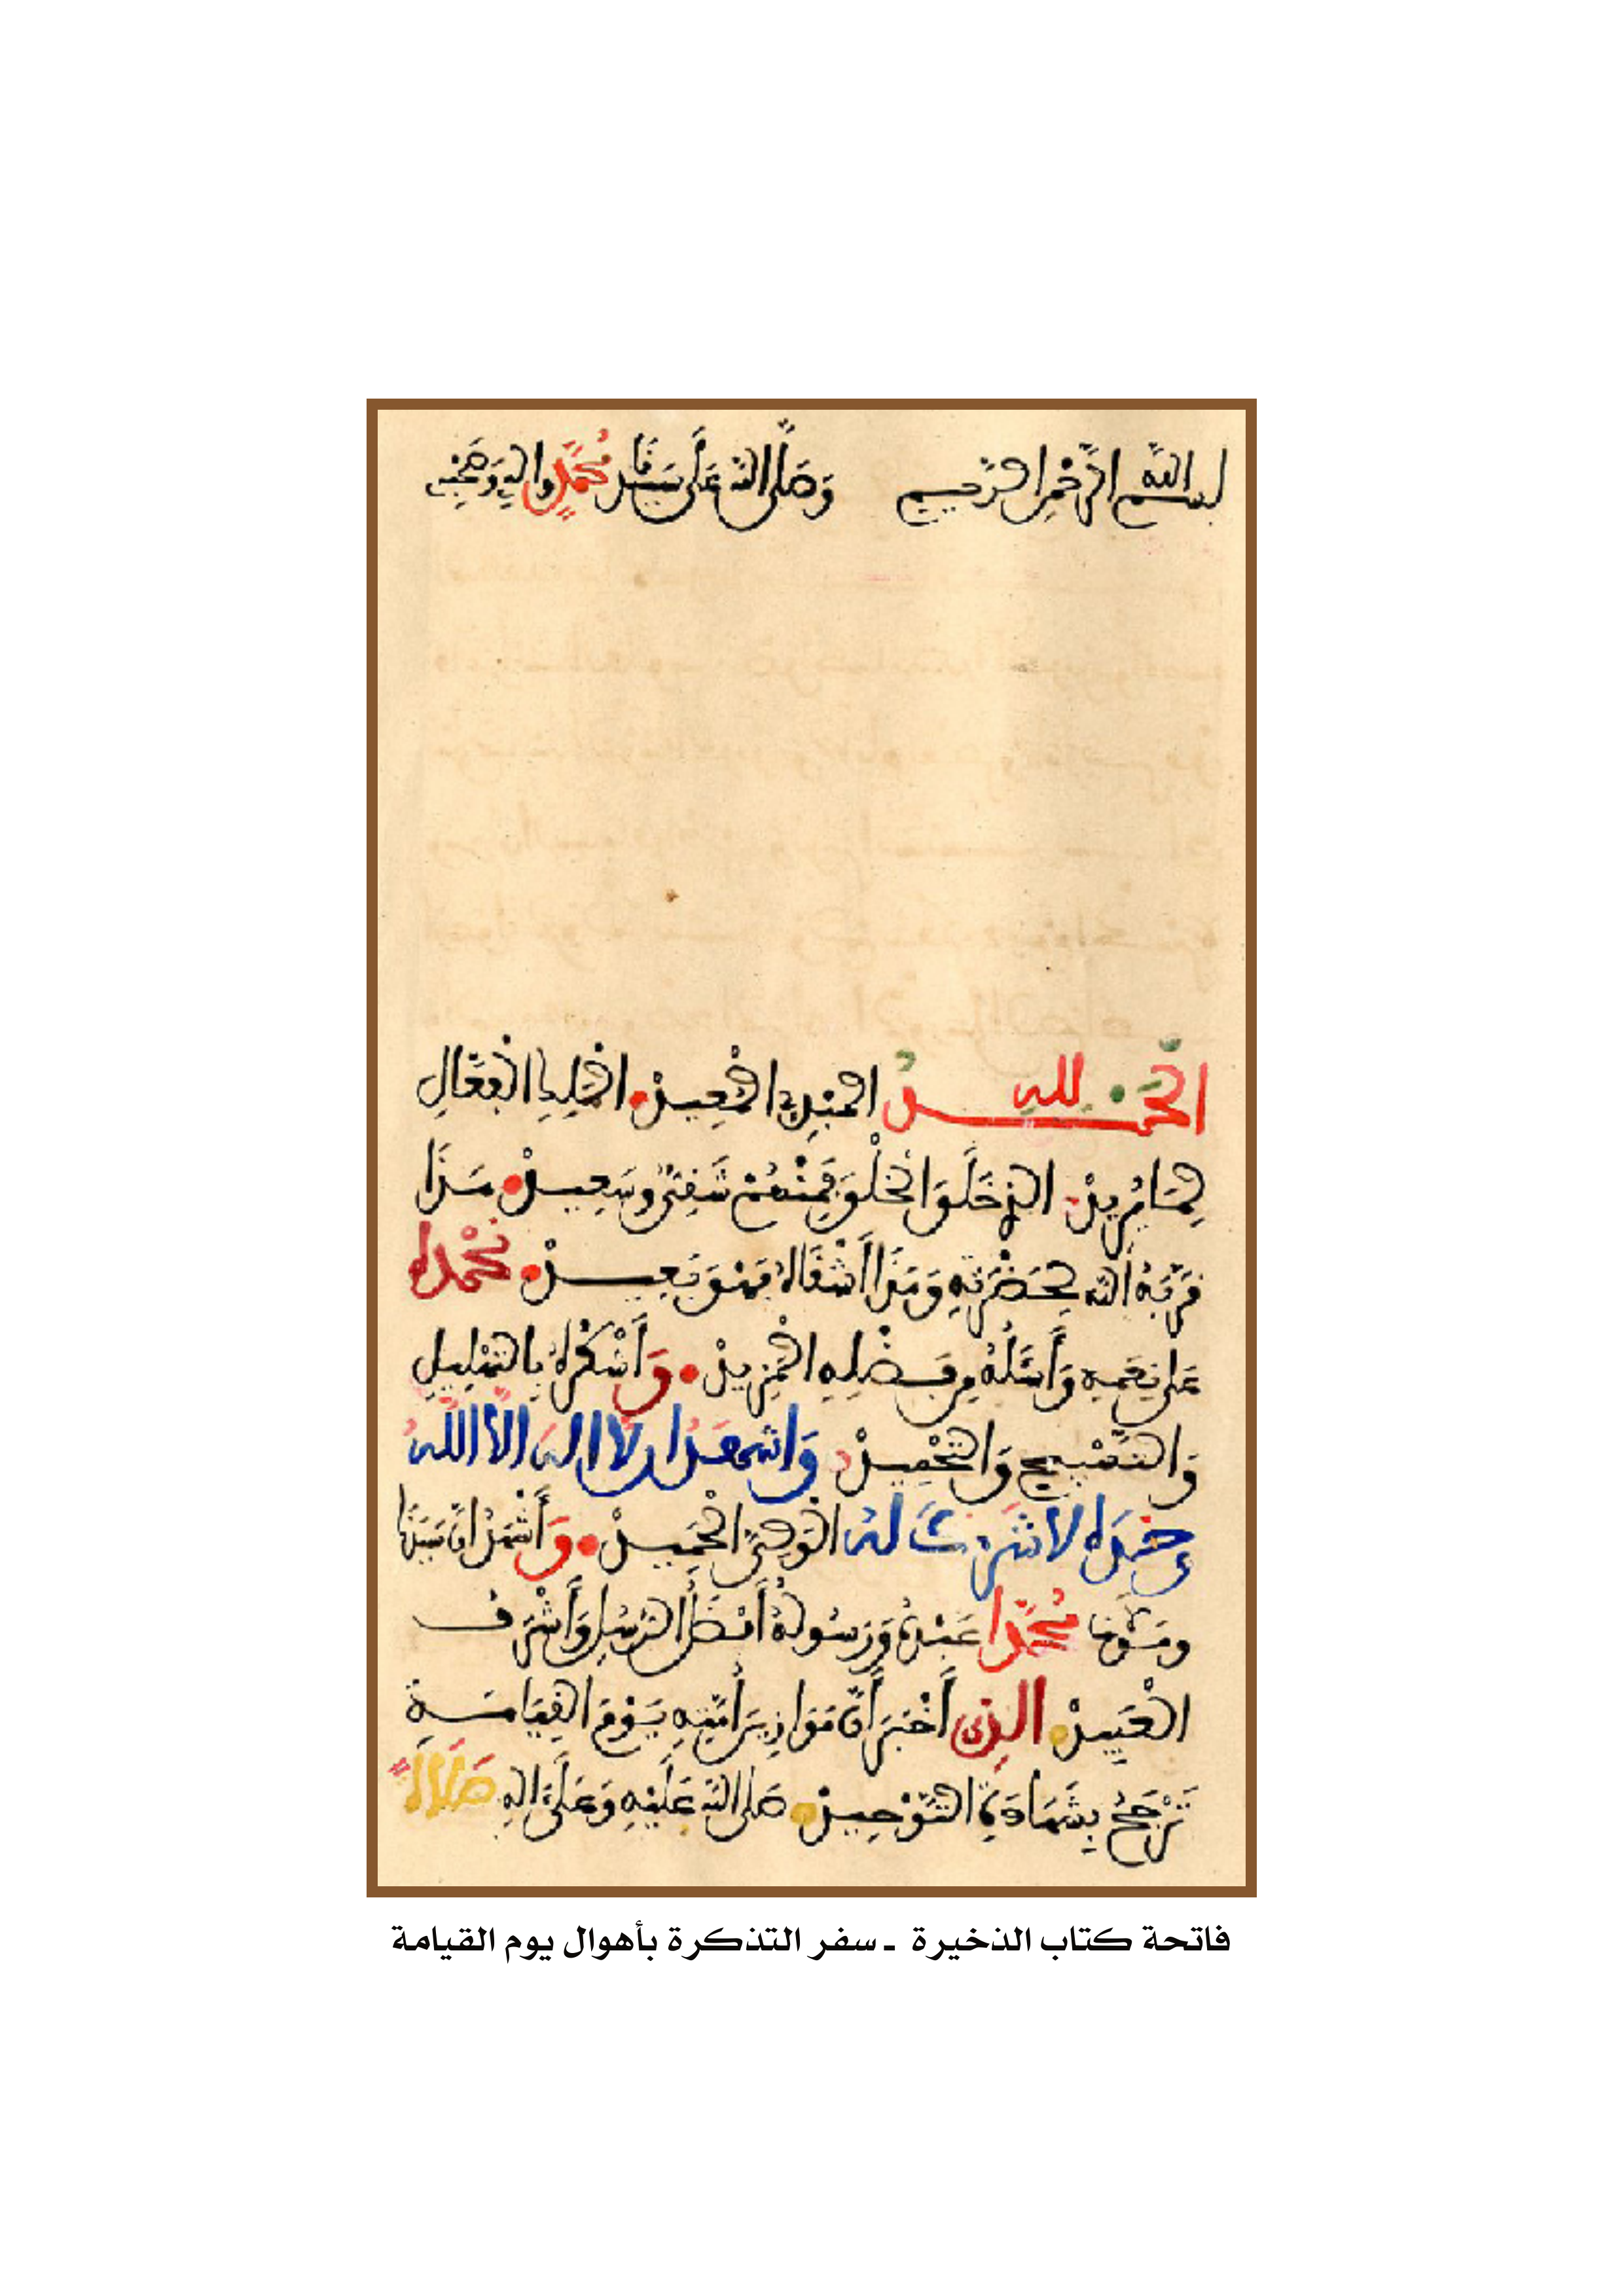 بسم الله الرحمن الرحيم وصلى الله على سيدنا محمد واله وصحبه
الحمد لله المبدئ المعيد الجليل الفعال
لما يريد الذي خلق الخلق فمنهم شقي وسعيد هذا
قربه الله لحضرته وهذا أشقاه فهو بعيد نحمده
على نعمه وأسئله من فضله المزيد وأشكره بالتهليل
والتسبيح والتحميد واشهد ان لا اله الا الله
وحده لا شريك له الولي الحميد وأشهد ان سيدنا
ومولانا محمدا عبده ورسوله أفضل الرسل وأشرف
العبيد الذي أخبر أن موازين أمته يوم القيامة
ترجح بشهادة التوحيد صلى الله عليه وعلى اله صلاة
فاتحة كتاب الذخيرة ـ سفر التذكرة بأهوال يوم القيامة